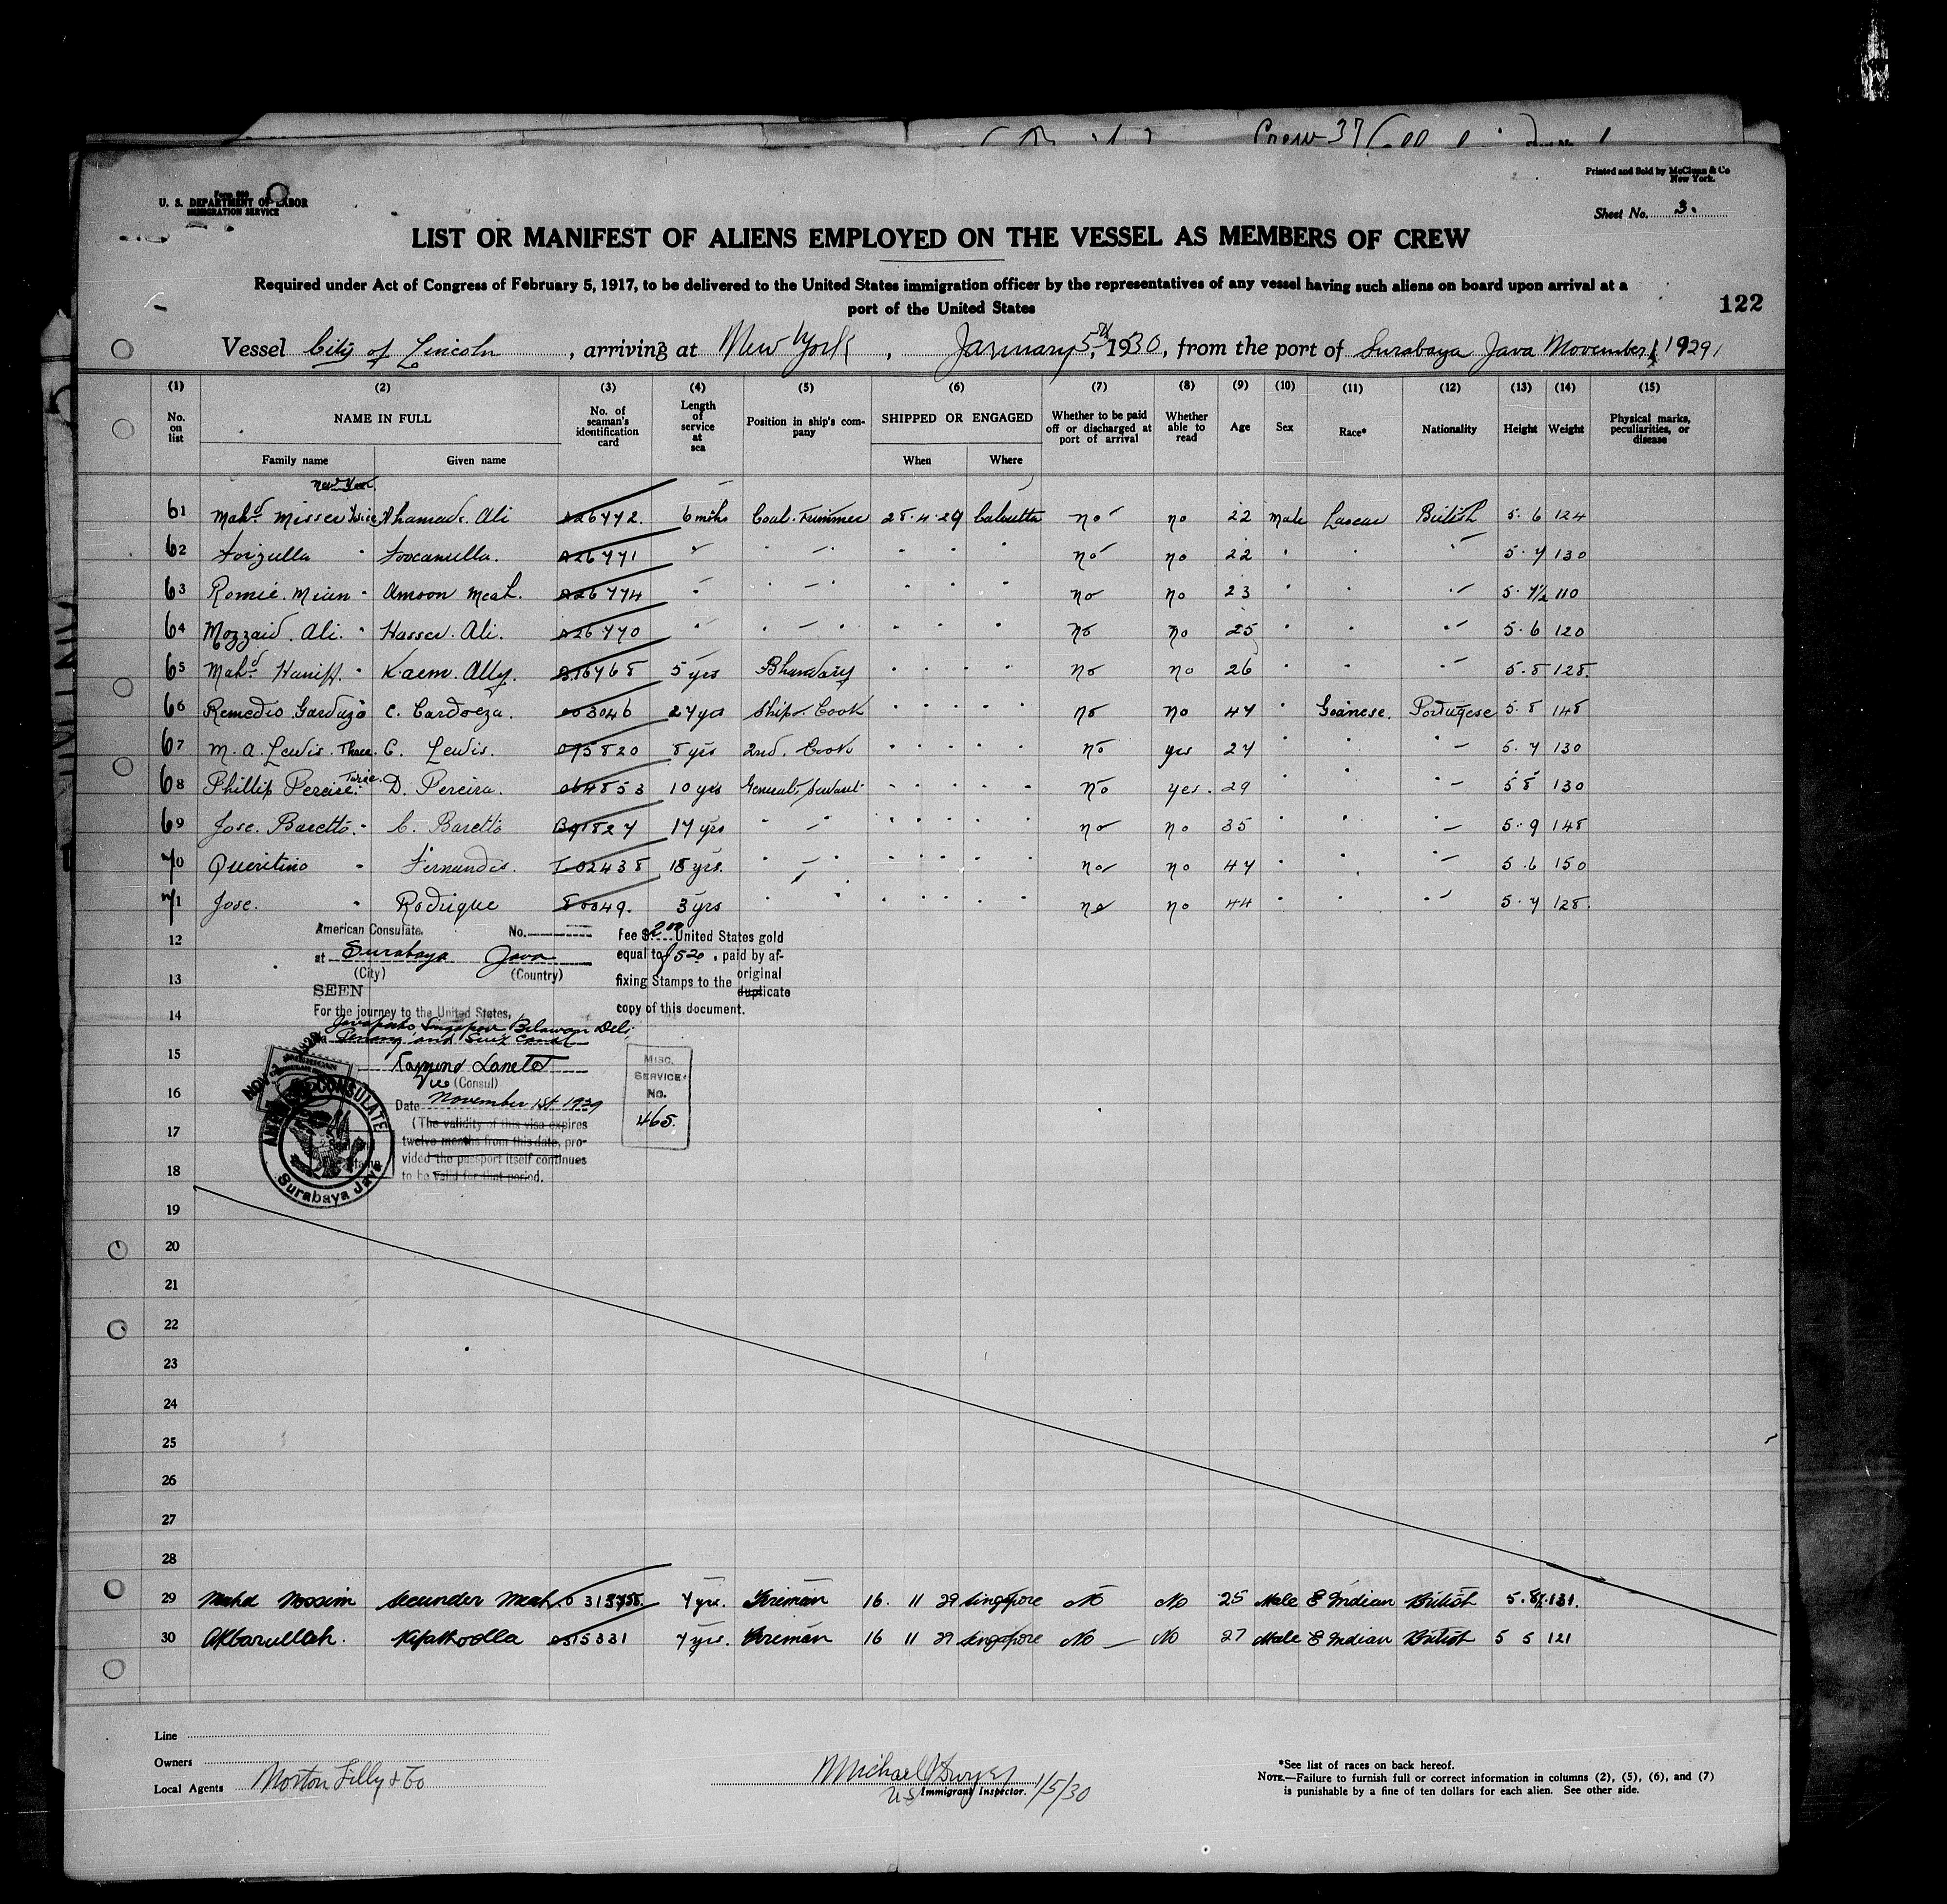 Crew 37
Form 680
U. S. DEPARTMENT OF LABOR
IMMIGRATION SERVICE
Printed and Sold by McClunn & Co
New York.
Sheet No. 3.
LIST OR MANIFEST OF ALIENS EMPLOYED ON THE VESSEL AS MEMBERS OF CREW
Required under Act of Congress of February 5, 1917, to be delivered to the United States immigration officer by the representatives of any vessel having such aliens on board upon arrival at a
port of the United States
122
Vessel City of Lincoln, arriving at New York, January 5th, 1930, from the port of Surabaya Java November 1 1929
(1) (2) (3) (4) (5) (6) (7) (8) (9) (10) (11) (12) (13) (14) (15)
No. on list NAME IN FULL Family name Given name No. of seaman's identification card Length of service at sea Position in ship's company SHIPPED OR ENGAGED When Where Whether to be paid off or discharged at port of arrival Whether able to read Age Sex Race* Nationality Height Weight Physical marks, peculiarities, or disease
New York
61 Mahd Misser Twice Ahamad. Ali A26772. 6 mths Coal. Trimmer 25.4.29 Calcutta no no 22 Male Lascar British 5. 6 124
62 Foizulla " Foocanulla. A26771 " " " " " " no no 22 " " " 5. 7 130
63 Romie. Mien " Amoon Meah. A26774 " " " " " no no 23 " " " 5. 7½ 110
64 Mozzaid. Ali. " Hasser. Ali. A26770 " " " " " no no 25 " " " 5. 6 120
65 Mahd Haniff. " Kaem. Ally. 5 yrs Bhandary " " " " no no 26 " " " 5. 8 128.
66 Remedio Garduzo C. Cardoeza. 003046 27 yrs Ship's Cook " " " " no no 47 " Goanese. Portugese 5. 8 148
67 M. A. Lewis. Three. C. Lewis. 095820 8 yrs 2nd. Cook " " " " no yes 27 " " " 5. 7 130
68 Phillip Pereire. Twice. D. Pereira. 064853 10 yrs General. Servant. " " " " no yes. 29 " " 5 8 130
69 Jose. Baretto. " C. Baretto 17 yrs " " " " " " no no 35 " " " 5. 9 148
70 Queritino " Fernandis. I-02438 18 yrs. " " " " " " no no 47 " " " 5. 6 150
71 Jose. " Rodrique 80049. 3 yrs " " " " " " no no 44 " " " 5. 7 128.
American Consulate. No.
at Surabaya Java
(City) (Country)
SEEN
For the journey to the United States,
via Java ports, Singapore Belawan Deli,
Penang and Suez Canal
(Consul)
Date November 1st 1929
(The validity of this visa expires
twelve months from this date, pro-
vided the passport itself continues
to be valid for that period.
Fee $ 2.00 United States gold
equal to f 5.20, paid by af-
fixing Stamps to the original
duplicate
copy of this document.
MISC.
SERVICE
No.
465.
AMERICAN CONSULATE
Surabaya Java
12
13
14
15
16
17
18
19
20
21
22
23
24
25
26
27
28
29 Mahd Nossim Secunder Meah. 7 yrs. Fireman 16. 11 29 Singapore No No 25 Male E Indian British 5. 8½ 131.
30 Akbarullah. 7 yrs. Fireman 16 11 29 Singapore No No 27 Male E Indian British 5 5 121
Line
Owners
Local Agents Norton Lilly & Co
Michael O'Dwyer
U S Immigrant Inspector. 1/5/30
*See list of races on back hereof.
NOTE.—Failure to furnish full or correct information in columns (2), (5), (6), and (7)
is punishable by a fine of ten dollars for each alien. See other side.